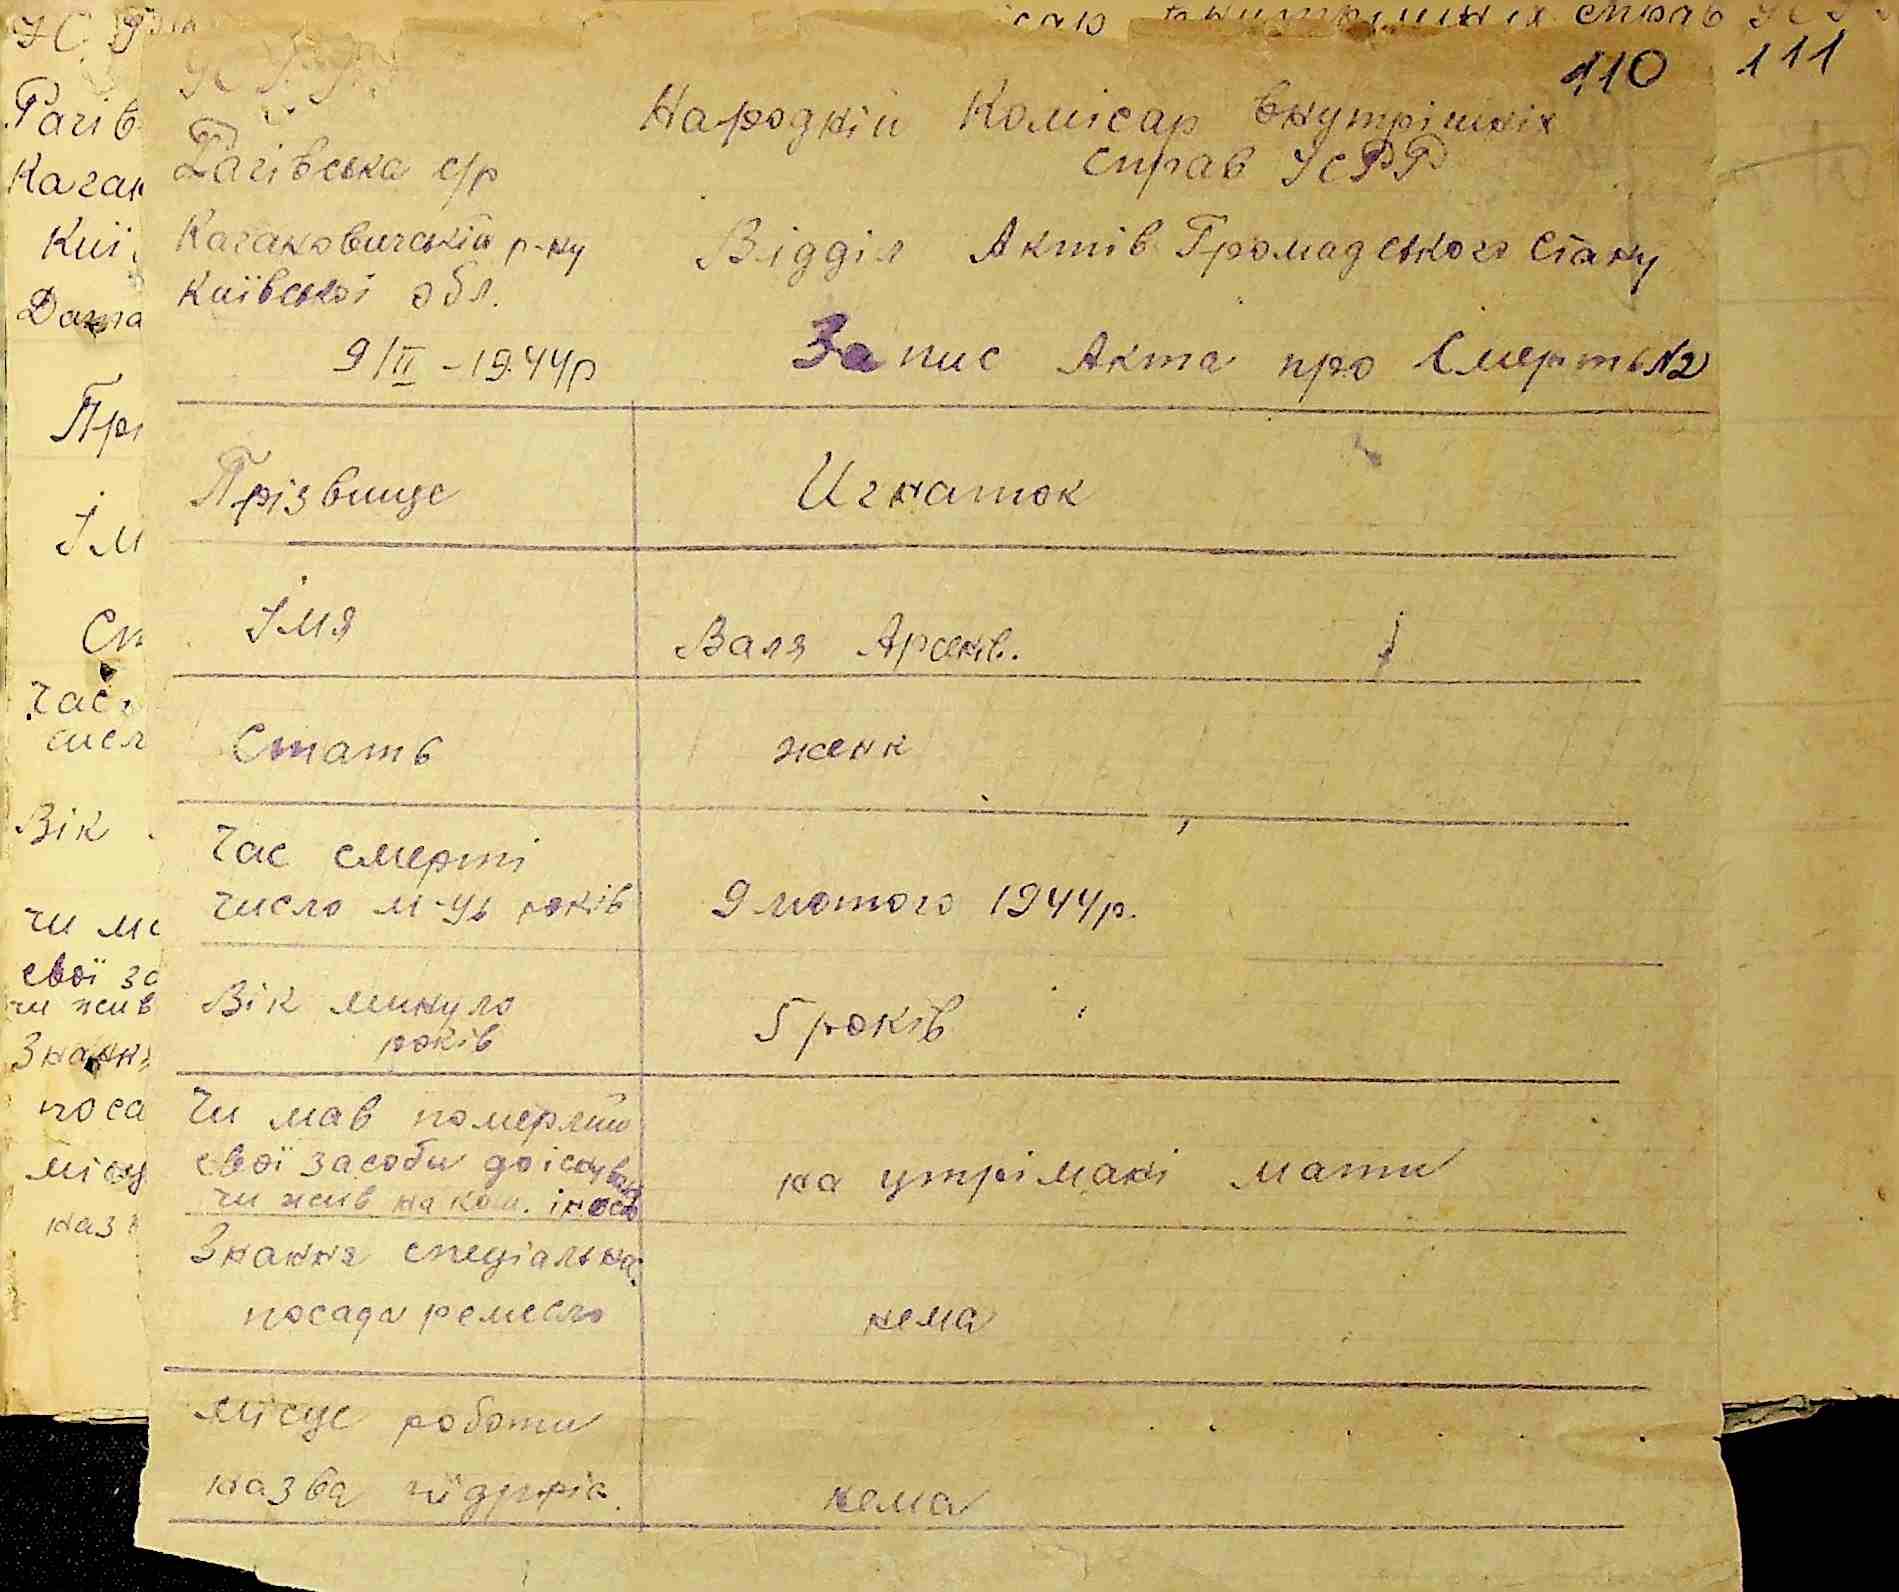 110 111
УСРР
Рагівська с/р
Кагановичський р-ну
Київської обл.
9/II -1944р
Народній Комісар Внутрішніх
Справ УСРР
Відділ Актів Громадського Стану
Запис Акта про Смерть №2
Прізвище Игнаток
Імя Валя Арсенів.
Стать женк
Час смерті
число м-ць років 9 лютого 1944р.
Вік минуло
років 5 років
Чи мав померлий
свої засоби до існув
чи жив на кош. іншо на утрімані мати
Знання спеціальна
посада ремесло нема
місце роботи
назва підпріє. нема
Рагів
Каган
Киї
Дата
Пр
Ім
Ст
Час
числ
Вік
чи м
свої за
чи жив
Знання
поса
місц
наз